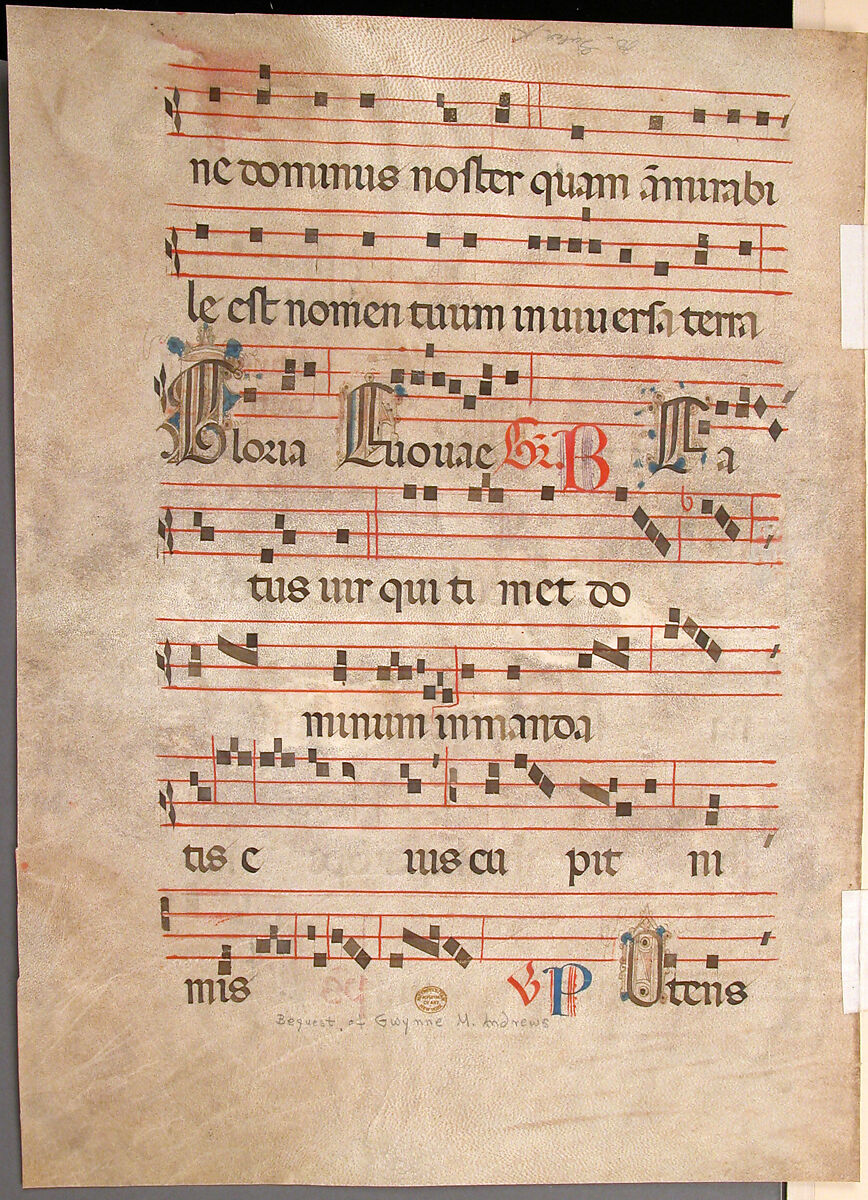 ne dominus noster quam ãmirabi
le est nomen tuum in uniuersa terra
Gloria Euouae Gr̃. B Ea
tus uir qui ti met do
minum in manda
tis e ius cu pit ni
mis V P Otens
Bequest of Gwynne M. Andrews